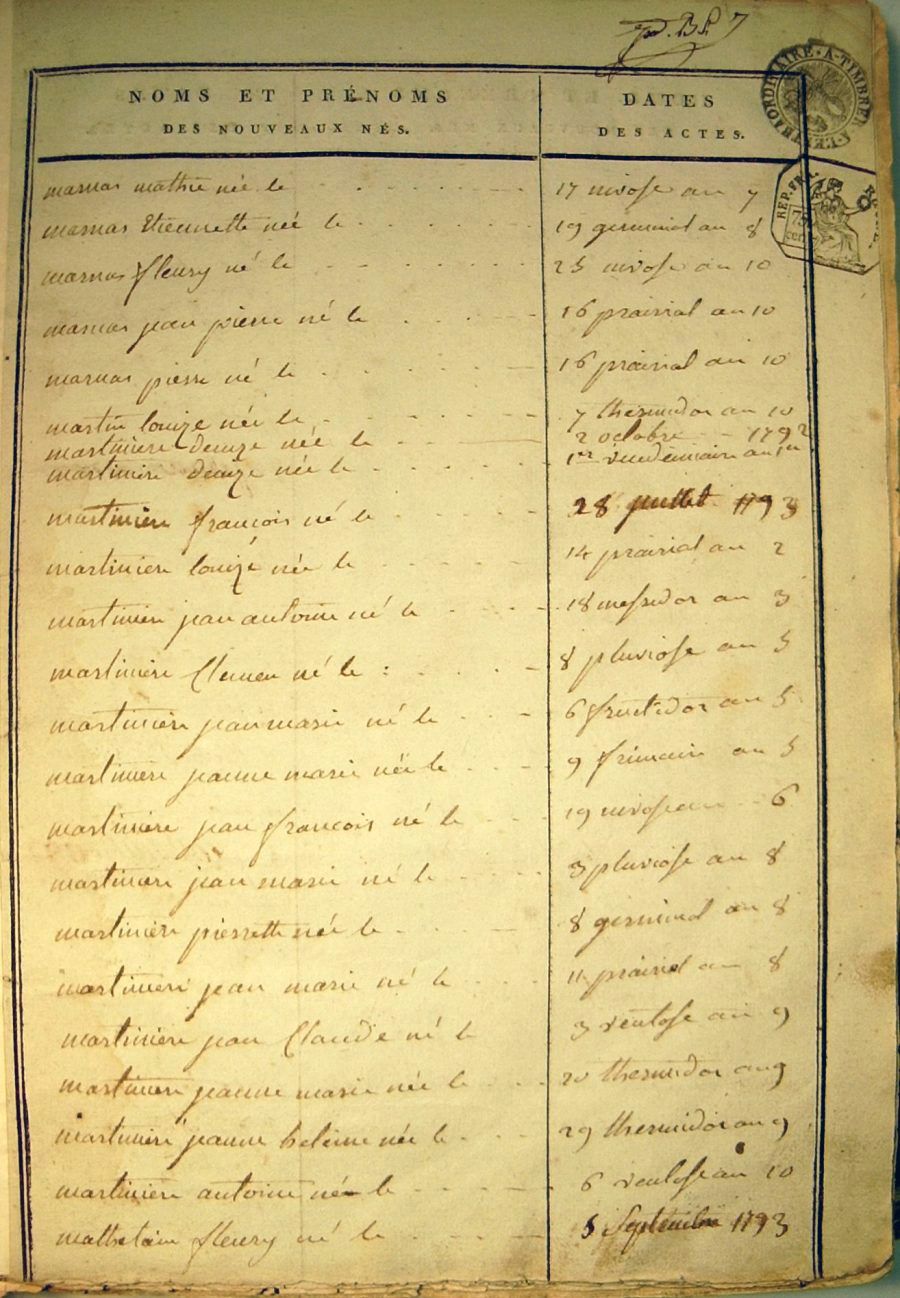 7
NOMS ET PRÉNOMS
DES NOUVEAUX NÉS.
DATES
DES ACTES.
A L'EXTRAORDINAIRE · A-TIMBRER
REP. FRA.
75
marnas mathie née le 17 nivose an 7
marnas Etiennette née le 19 germinal an 8
marnas fleury né le 25 nivose an 10
marnas jean pierre né le 16 prairial an 10
marnas pierre né le 16 prairial an 10
martin louize née le 7 thermidor an 10
martiniere denize née le 2 octobre 1792
martiniere denize née le 1er vendemiaire an 1er
martiniere françois né le 28 juillet 1793
martiniere louize née le 14 prairial an 2
martiniere jean antoine né le 18 messidor an 3
martiniere Clemen né le : 8 pluviose an 5
martiniere jean marie né le 6 fructidor an 5
martiniere jeanne marie née le 9 frimaire an 5
martiniere jean françois né le 19 nivose an 6
martiniere jean marie né le 3 pluviose an 8
martiniere pierrette née le 8 germinal an 8
martiniere jean marie né le 11 prairial an 8
martiniere jean Claude né le 3 ventose an 9
martiniere jeanne marie née le 20 thermidor an 9
martiniere jeanne heleine née le 29 thermidor an 9
martiniere antoine né le 6 ventose an 10
fleury né le 5 Septembre 1793